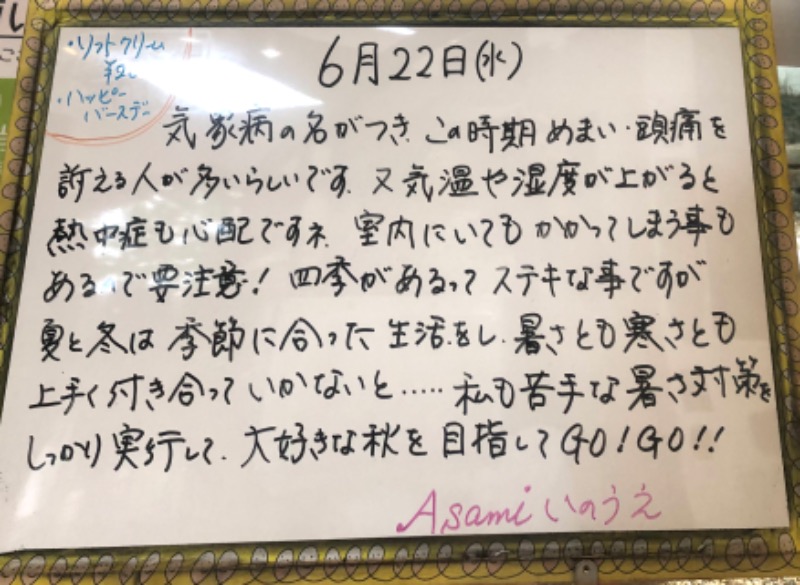 ・ソフトクリーム
・ハッピー
バースデー
6月22日(水)
気象病の名がつき、この時期めまい・頭痛を
訴える人が多いらしいです。又気温や湿度が上がると
熱中症も心配ですネ。室内にいてもかかってしまう事も
あるので要注意! 四季があるってステキな事ですが
夏と冬は季節に合った生活をし、暑さとも寒さとも
上手く付き合っていかないと…‥私も苦手な暑さ対策を
しっかり実行して、大好きな秋を目指してGO!GO!!
Asamiいのうえ